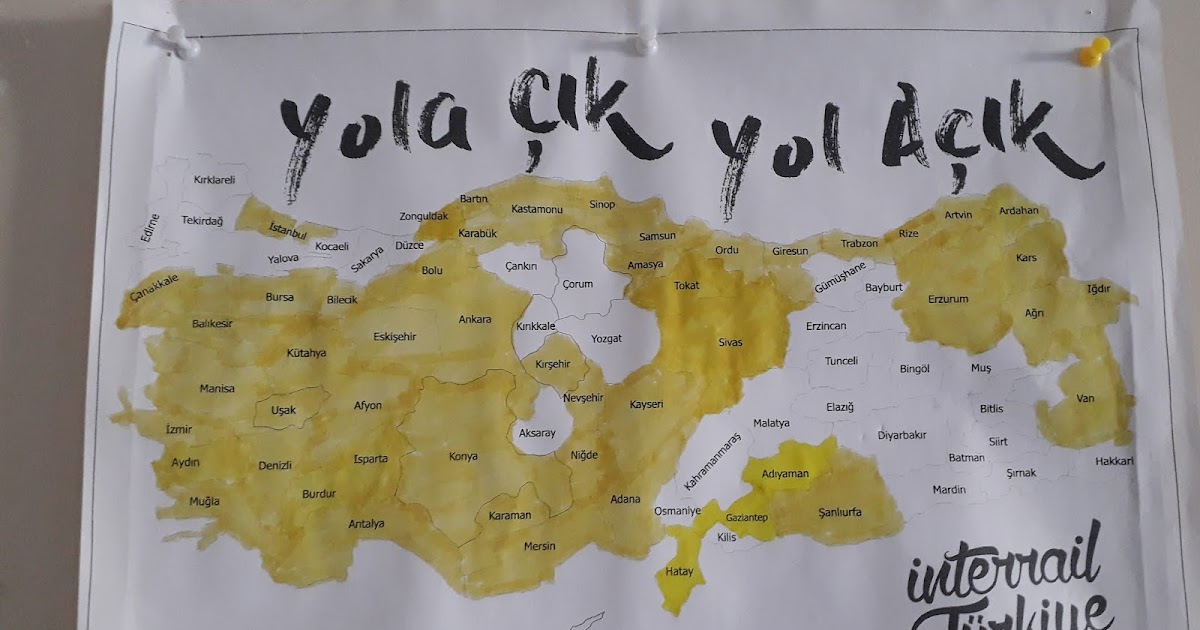 Yola Çık Yol Açık
Kırklareli
Edirne
Tekirdağ
İstanbul
Kocaeli
Yalova
Sakarya
Düzce
Zonguldak
Bartın
Karabük
Kastamonu
Sinop
Samsun
Ordu
Giresun
Trabzon
Rize
Artvin
Ardahan
Çanakkale
Bursa
Bilecik
Bolu
Çankırı
Çorum
Amasya
Tokat
Gümüşhane
Bayburt
Erzurum
Kars
Iğdır
Ağrı
Balıkesir
Kütahya
Eskişehir
Ankara
Kırıkkale
Yozgat
Sivas
Erzincan
Tunceli
Bingöl
Muş
Kırşehir
Manisa
Uşak
Afyon
Nevşehir
Kayseri
Elazığ
Bitlis
Van
İzmir
Aksaray
Malatya
Diyarbakır
Siirt
Aydın
Denizli
Isparta
Konya
Niğde
Kahramanmaraş
Adıyaman
Batman
Şırnak
Hakkari
Muğla
Burdur
Antalya
Karaman
Mersin
Adana
Osmaniye
Gaziantep
Kilis
Şanlıurfa
Mardin
Hatay
interrail
Türkiye